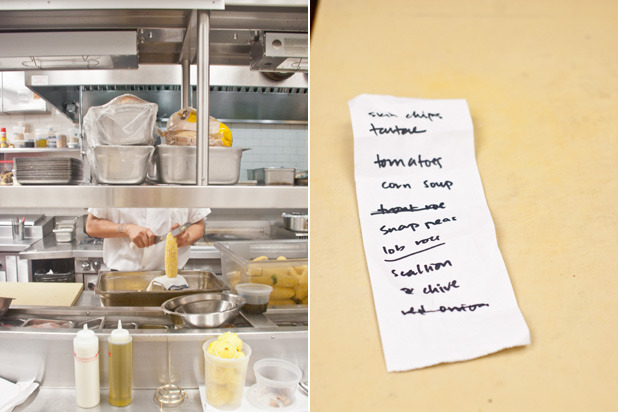 skin chips
tartare
tomatoes
corn soup
trout roe
snap peas
lob roe
scallion
& chive
red onion